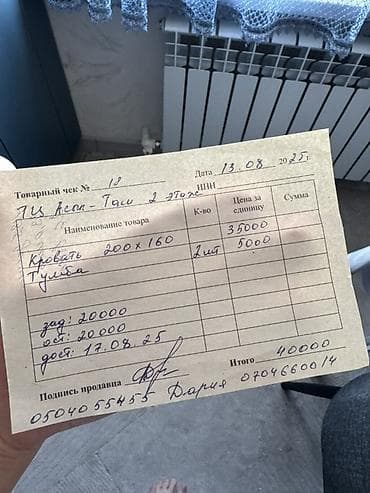 Товарный чек № 12 Дата 13.08 2025 г.
ТЦ Аска-Таш 2 этаж ИНН
Наименование товара К-во Цена за единицу Сумма
Кровать 200 x 160 35000
Тумба 2 шт 5000
зад: 20000
ост: 20000
дост: 17.08.25
Итого 40000
Подпись продавца
0504055455 Дария 0704660014